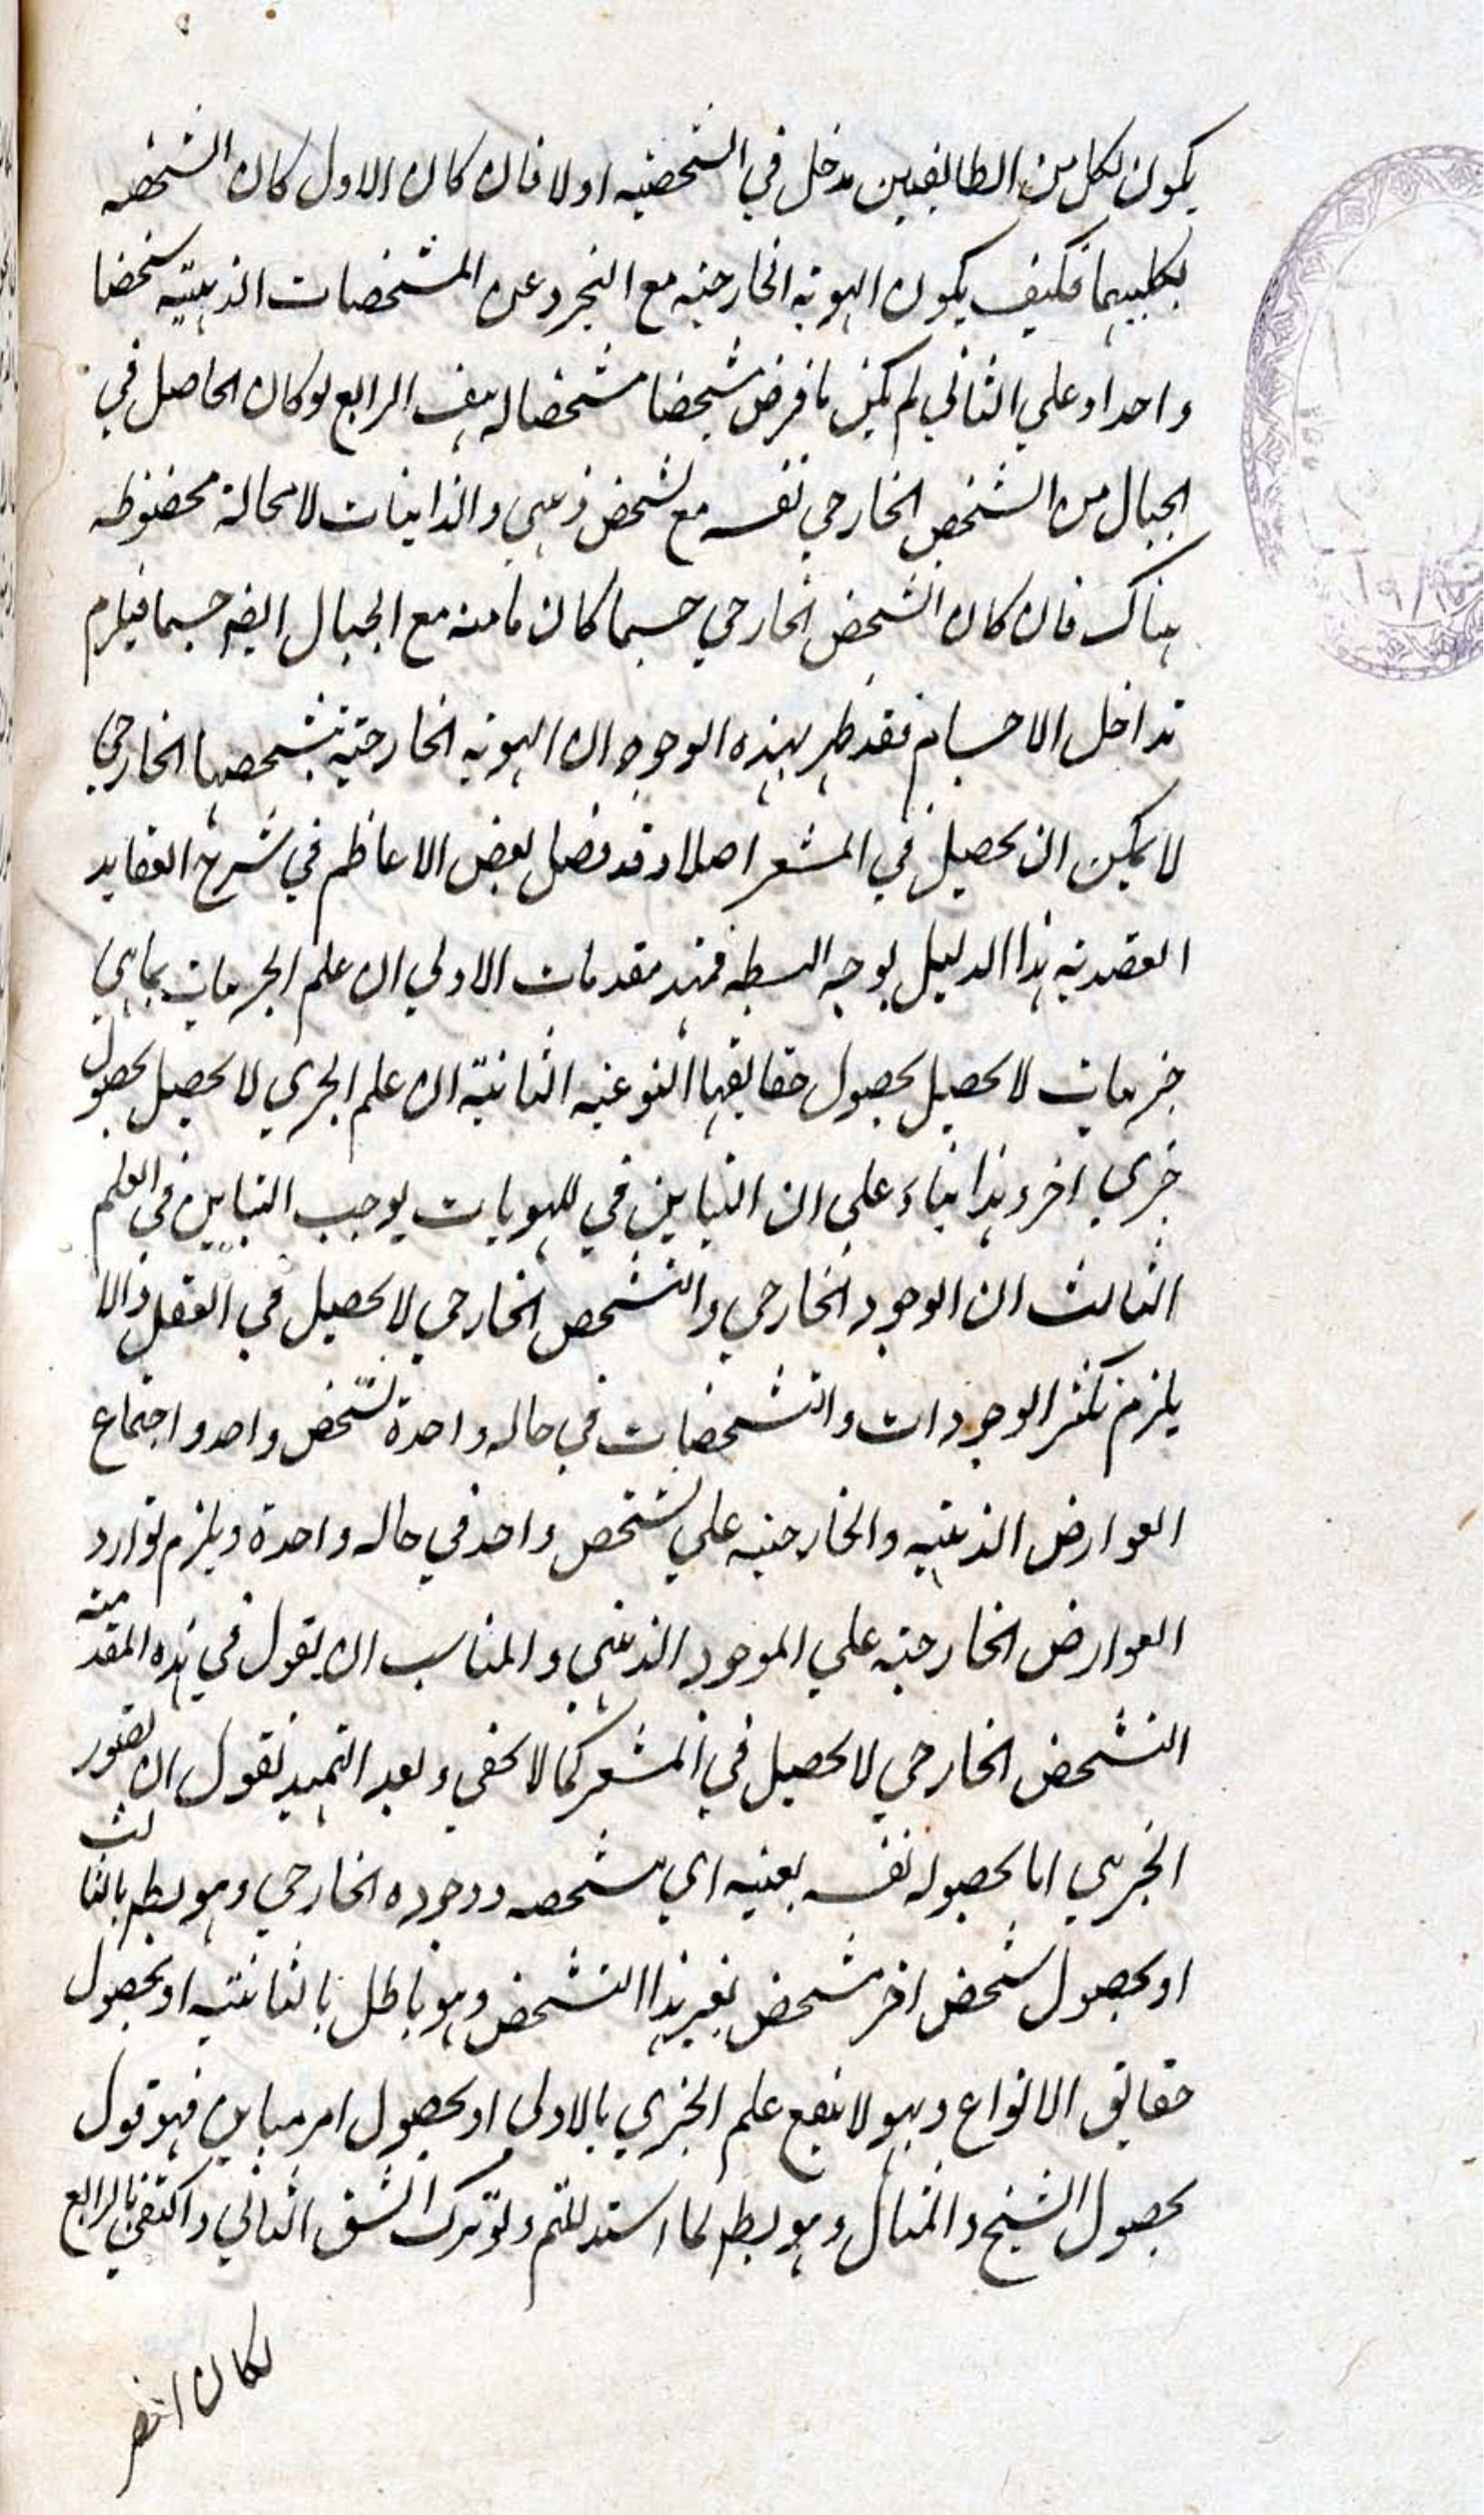 يكون لكل من الطائفتين مدخل في الشخصية اولا فان كان الاول كان الشخصية
بكليهما فكيف يكون الهوية الخارجية مع التجرد عن المشخصات الذهنية شخصا
واحدا وعلي الثاني لم يكن ما فرض مشخصا مشخصا له هف الرابع لو كان الحاصل في
الخيال من الشخص الخارجي نفسه مع تشخص ذهني والذاتيات لا محالة محفوظه
هناك فان كان الشخص الخارجي جسما كان ما منه مع الخيال ايضا جسما فيلزم
تداخل الاجسام فقد ظهر بهذه الوجوه ان الهوية الخارجية بتشخصها الخارجي
لا يمكن ان يحصل في المشعر اصلا وقد فصل بعض الاعاظم في شرح العقايد
العضدية هذا الدليل بوجه البسط فمهد مقدمات الاولي ان علم الجزييات بما هي
جزييات لا يحصل بحصول حقايقها النوعية الثانية ان علم الجزي لا يحصل بحصول
جزي اخر وهذا بناء علي ان التباين في الهويات يوجب التباين في العلم
الثالث ان الوجود الخارجي والتشخص الخارجي لا يحصل في العقل والا
يلزم تكثر الوجودات والتشخصات في حاله واحدة لشخص واحد واجتماع
العوارض الذهنية والخارجية علي شخص واحد في حاله واحدة ويلزم توارد
العوارض الخارجية علي الموجود الذهني والمناسب ان يقول في هذه المقدمة
التشخص الخارجي لا يحصل في المشعر كما لا يخفي وبعد التمهيد نقول ان تصور
الجزيي اما بحصوله نفسه بعينه اي بتشخصه ووجوده الخارجي وهو بط بالثالث
او بحصول شخص اخر مشخص بغير هذا التشخص وهو باطل بالثانية او بحصول
حقايق الانواع وهو لا ينفع علم الجزي بالاولي او بحصول امر مباين فهو قول
بحصول الشبح والمثال وهو بط لما استدللتم ولو ترك الشق الثاني واكتفي بالرابع
لكان اخصر